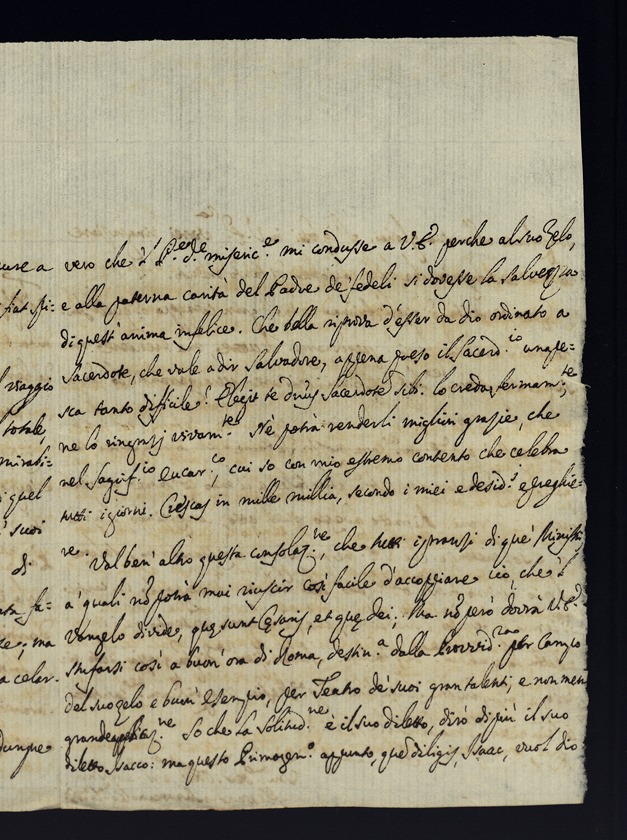 vero che d.ª P.e de miseric.e mi condusse a V.E. perche al suo zelo,
e alla paterna carità del Padre de' fedeli si dovesse la salvezza
di quest'anima infelice. Che bella riprova d'esser da dio ordinato a
Sacerdote, che vale a dir Salvadore, appena preso il Sacerd.io una pe-
sca tanto difficile! Elegit te d'nus Sacerdote sibi. lo creda fermam.te,
ne lo ringrazj vivam.te. Nè potrà renderli migliori grazie, che
nel Sagrif.io eucar.co, cui so con mio estremo contento che celebra
tutti i giorni. Crescas in mille millia, secondo i miei e desid.j e preghie-
re. Val ben' altro questa consolaz.ne, che i di que' Ministri
a' quali nõ potrà mai riuscir così facile d'accoppiare ciò, che l'
Vangelo divide, quę sunt Cęsaris, et quę dei; Ma nõ però dovrà V.E.
stufarsi così a buon'ora di Roma, destin.a dalla Provvid.za per Campo
del suo zelo e buon' esempio, per Teatro de' suoi gran talenti, e non men
grande So che la Solitud.ne è il suo diletto, dirò di più il suo
diletto Isacco: ma questo Primogen.o appunto, quẽ diligis, Isaac, vuol dio
viaggio
totale,
mirabi-
quel
suoi
di
ma
celar-
dunque